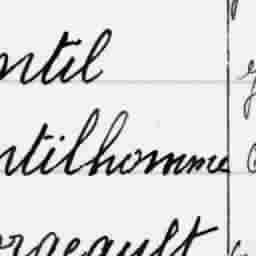 ntil
ntilhomme
orgeault